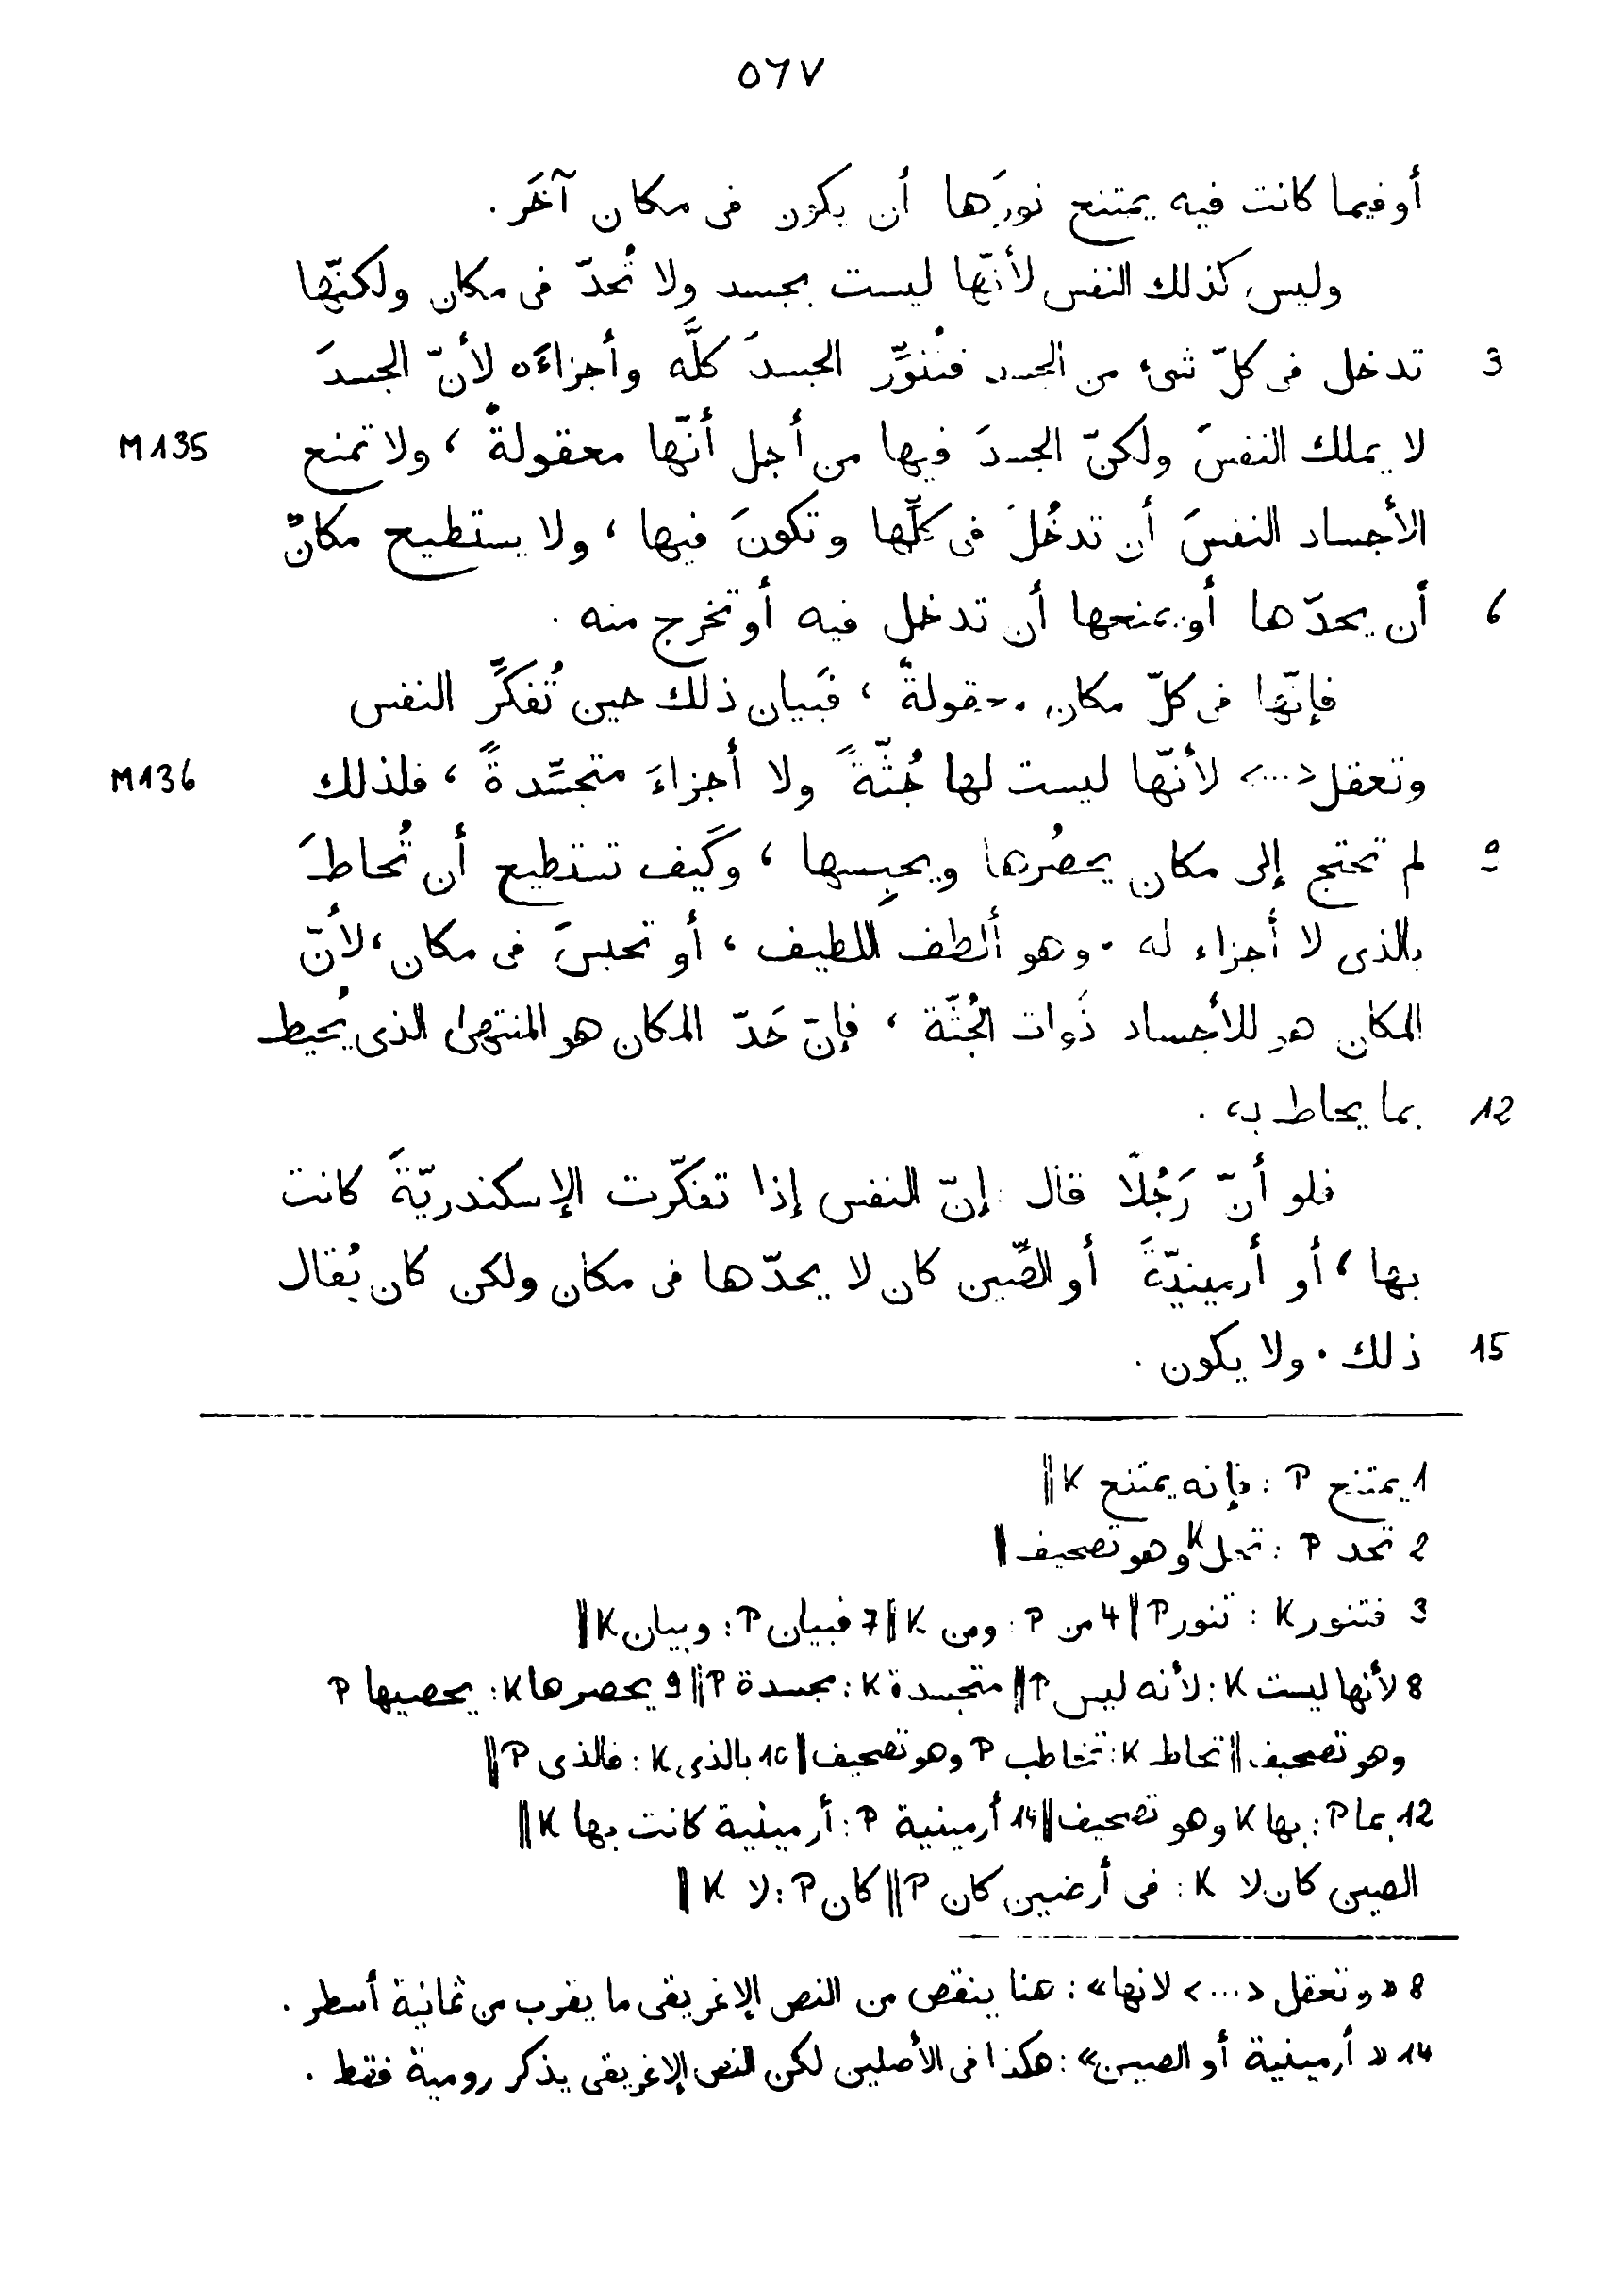 ٥٦٧
أو فيما كانت فيه يمتنع نورَها أن يكون فى مكان آخَر .
وليس كذلك النفس لأنّها ليست بجسد ولا تُحدّ فى مكان ولكنّها
3 تدخل فى كلّ شىء من الجسد فتُنوِّر الجسدَ كلَّه وأجزاءَه لأنّ الجسدَ
لا يملك النفسَ ولكنّ الجسدَ فيها من أجل أنّها معقولةٌ ، ولا تمنع M135
الأجساد النفسَ أن تدخُلَ فى كلِّها وتكونَ فيها ، ولا يستطيع مكانٌ
6 أن يحدّها أو يمنعها أن تدخل فيه أو تخرج منه .
فإنّها فى كلّ مكان معقولةٌ ، فبَيان ذلك حين تُفكِّر النفس
وتعقل <...> لأنّها ليست لها جُثّةً ولا أجزاءَ متجسِّدةً ، فلذلك M136
9 لم تحتج إلى مكان يحصُرها ويحبِسها ، وكَيف تستطيع أن تُحاطَ
بالذى لا أجزاء له . وهو ألطف اللطيف ، أو تحبسَ فى مكان ، لأنّ
المكان هو للأجساد ذَوات الجُثّة ، فإنّ حَدّ المكان هو المنتهى الذى يُحيط
12 بما يحاط به .
فلو أنّ رَجُلًا قال : إنّ النفس إذا تفكّرت الإسكندريّةَ كانت
بها ، أو أرمينيّةَ أو الصِّين كان لا يحدّها فى مكان ولكن كان يُقال
15 ذلك . ولا يكون .
1 يمتنع P : فإنه يمتنع K ||
2 تحد P : تحل K وهو تصحيف ||
3 فتنور K : تنور P || 4 من P : ومن K || 7 فبيان P : وبيان K ||
8 لأنها ليست K : لأنه ليس P || متجسدة K : مجسدة P || 9 يحصرها K : يحصيها P
وهو تصحيف || تحاط K : تخاطب P وهو تصحيف || 10 بالذى K : فالذى P ||
12 بما P : بها K وهو تصحيف || 14 أرمينية P : أرمينية كانت بها K ||
الصين كان لا K : فى أرضين كان P || كان P : لا K ||
8 «وتعقل <...> لانها» : هنا ينقص من النص الإغريقى ما يقرب من ثمانية أسطر .
14 «أرمينية أو الصين» : هكذا فى الأصلين لكن النص الإغريقى يذكر رومية فقط .